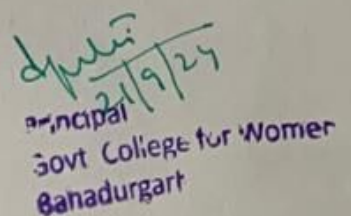 21/9/24
Principal
Govt College for Women
Bahadurgarh